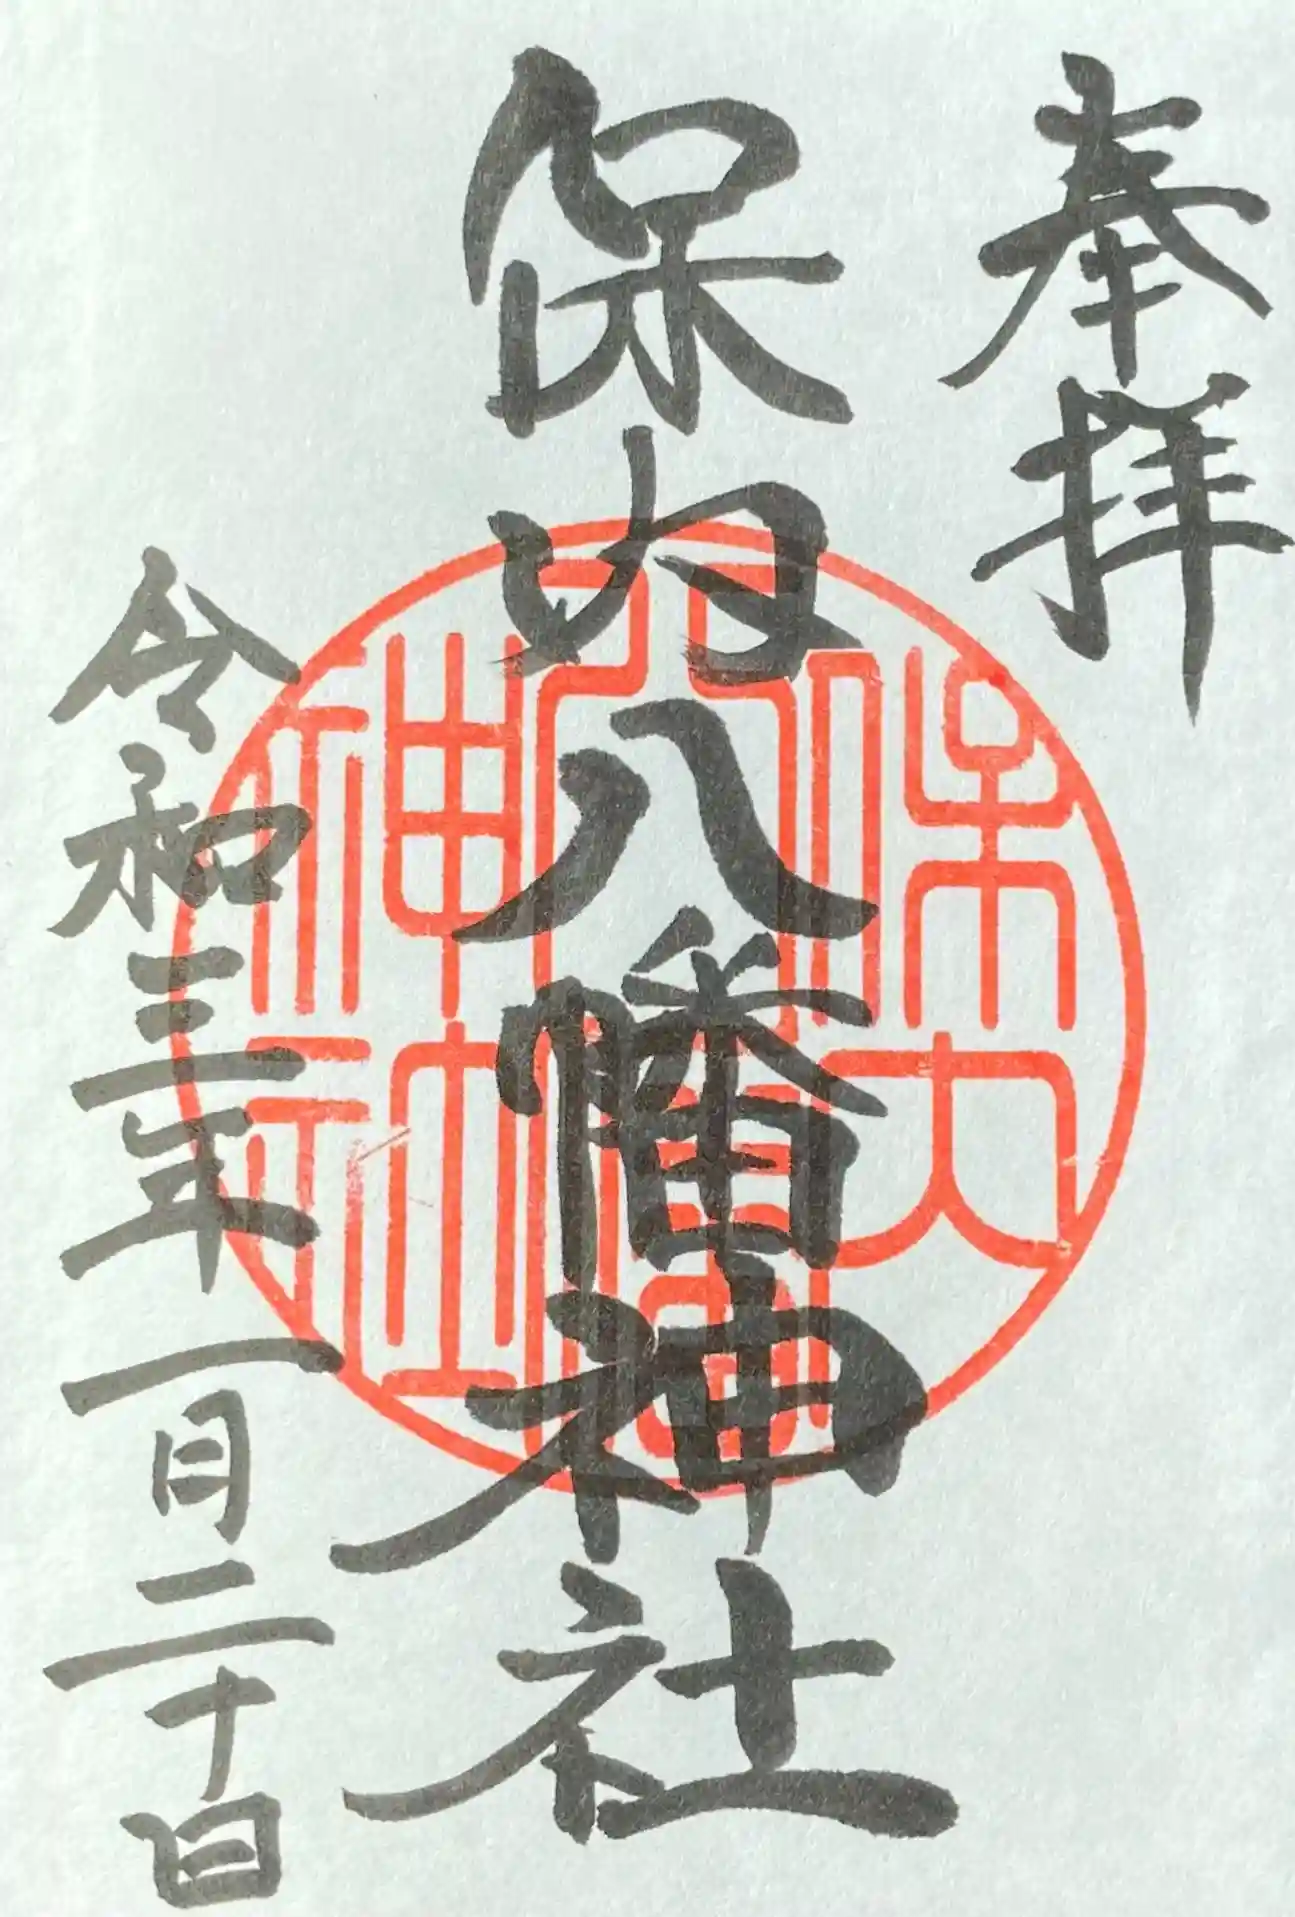 奉拝
保内八幡神社
保内
八幡
神社
令和三年一月二十日